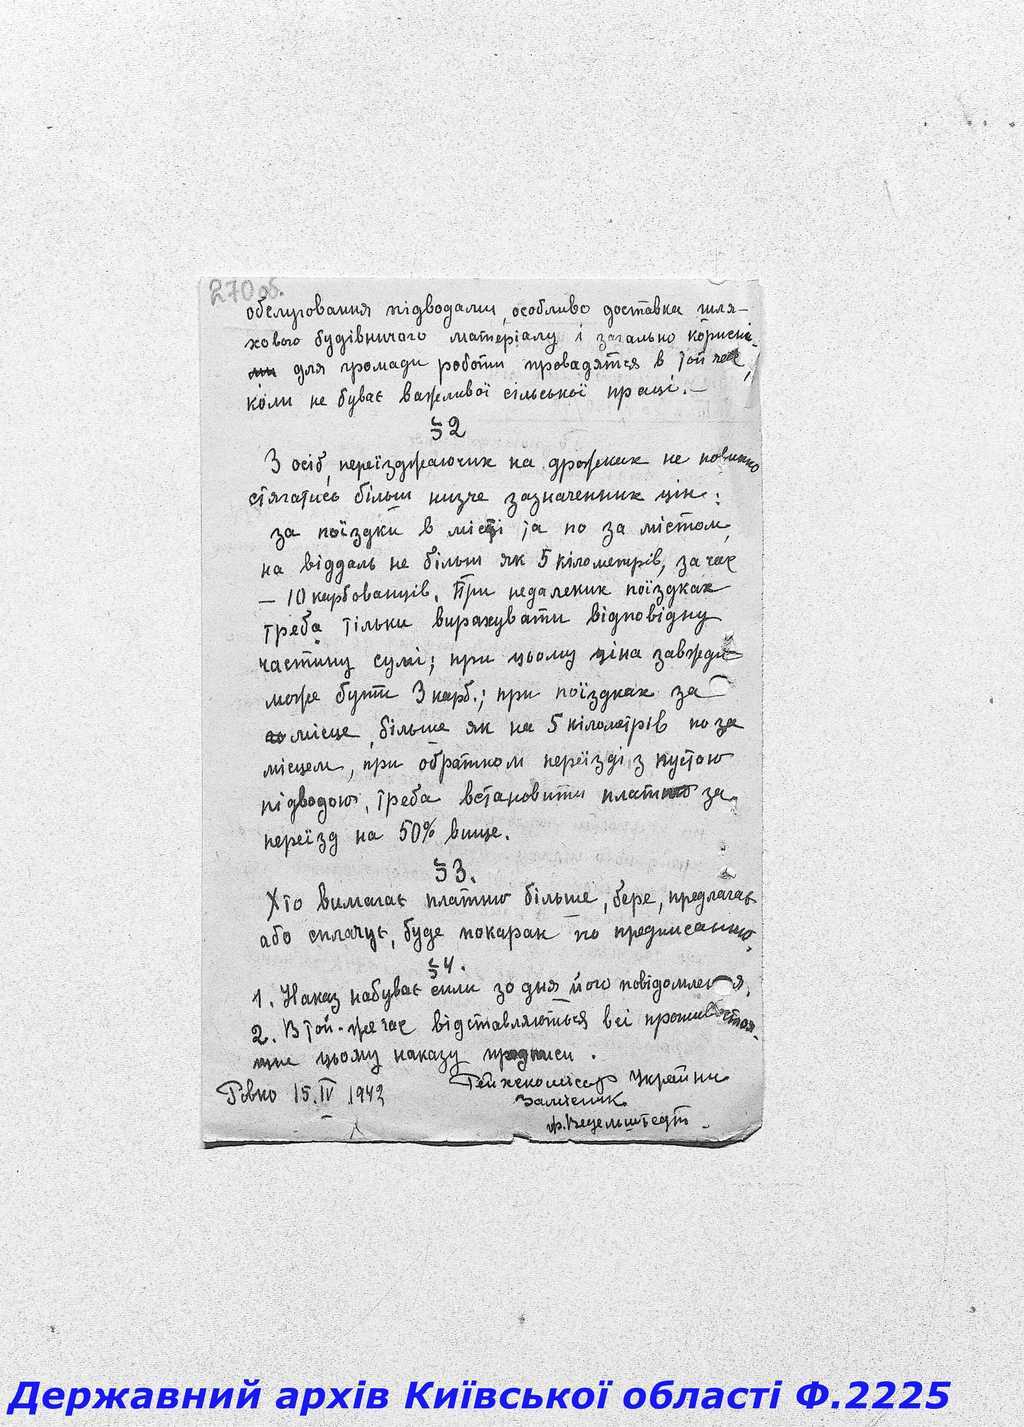 270об.
обслуговання підводами, особливо доставка шля-
хового будівничого матеріалу і загально корисні
для громади роботи провадятся в той час,
коли не буває важливої сільської праці.—
§2
З осіб, переїзджаючих на дрожках не повинно
стягатись більш низче зазначенних цін:
за поїздки в місті та по за містом,
на віддаль не більш як 5 кілометрів, за час
— 10 карбованців. При недалеких поїздках
треба тільки вирахувати відповідну
частину сумі; при цьому ціна завжди
може бути 3 карб.; при поїздках за
місце, більше як на 5 кілометрів по за
місцем, при обратном переїзді з пустою
підводою, треба встановити платню за
переїзд на 50% вище.
§3.
Хто вимагає платню більше, бере, предлагає
або сплачує, буде покаран по предписанню.
§4.
1. Наказ набуває сили зо дня його повідомлення.
2. В той-же час відставляються всі
цьому наказу приписи.
Рейхскомісар України
Рівно 15.IV 1942
Замісник